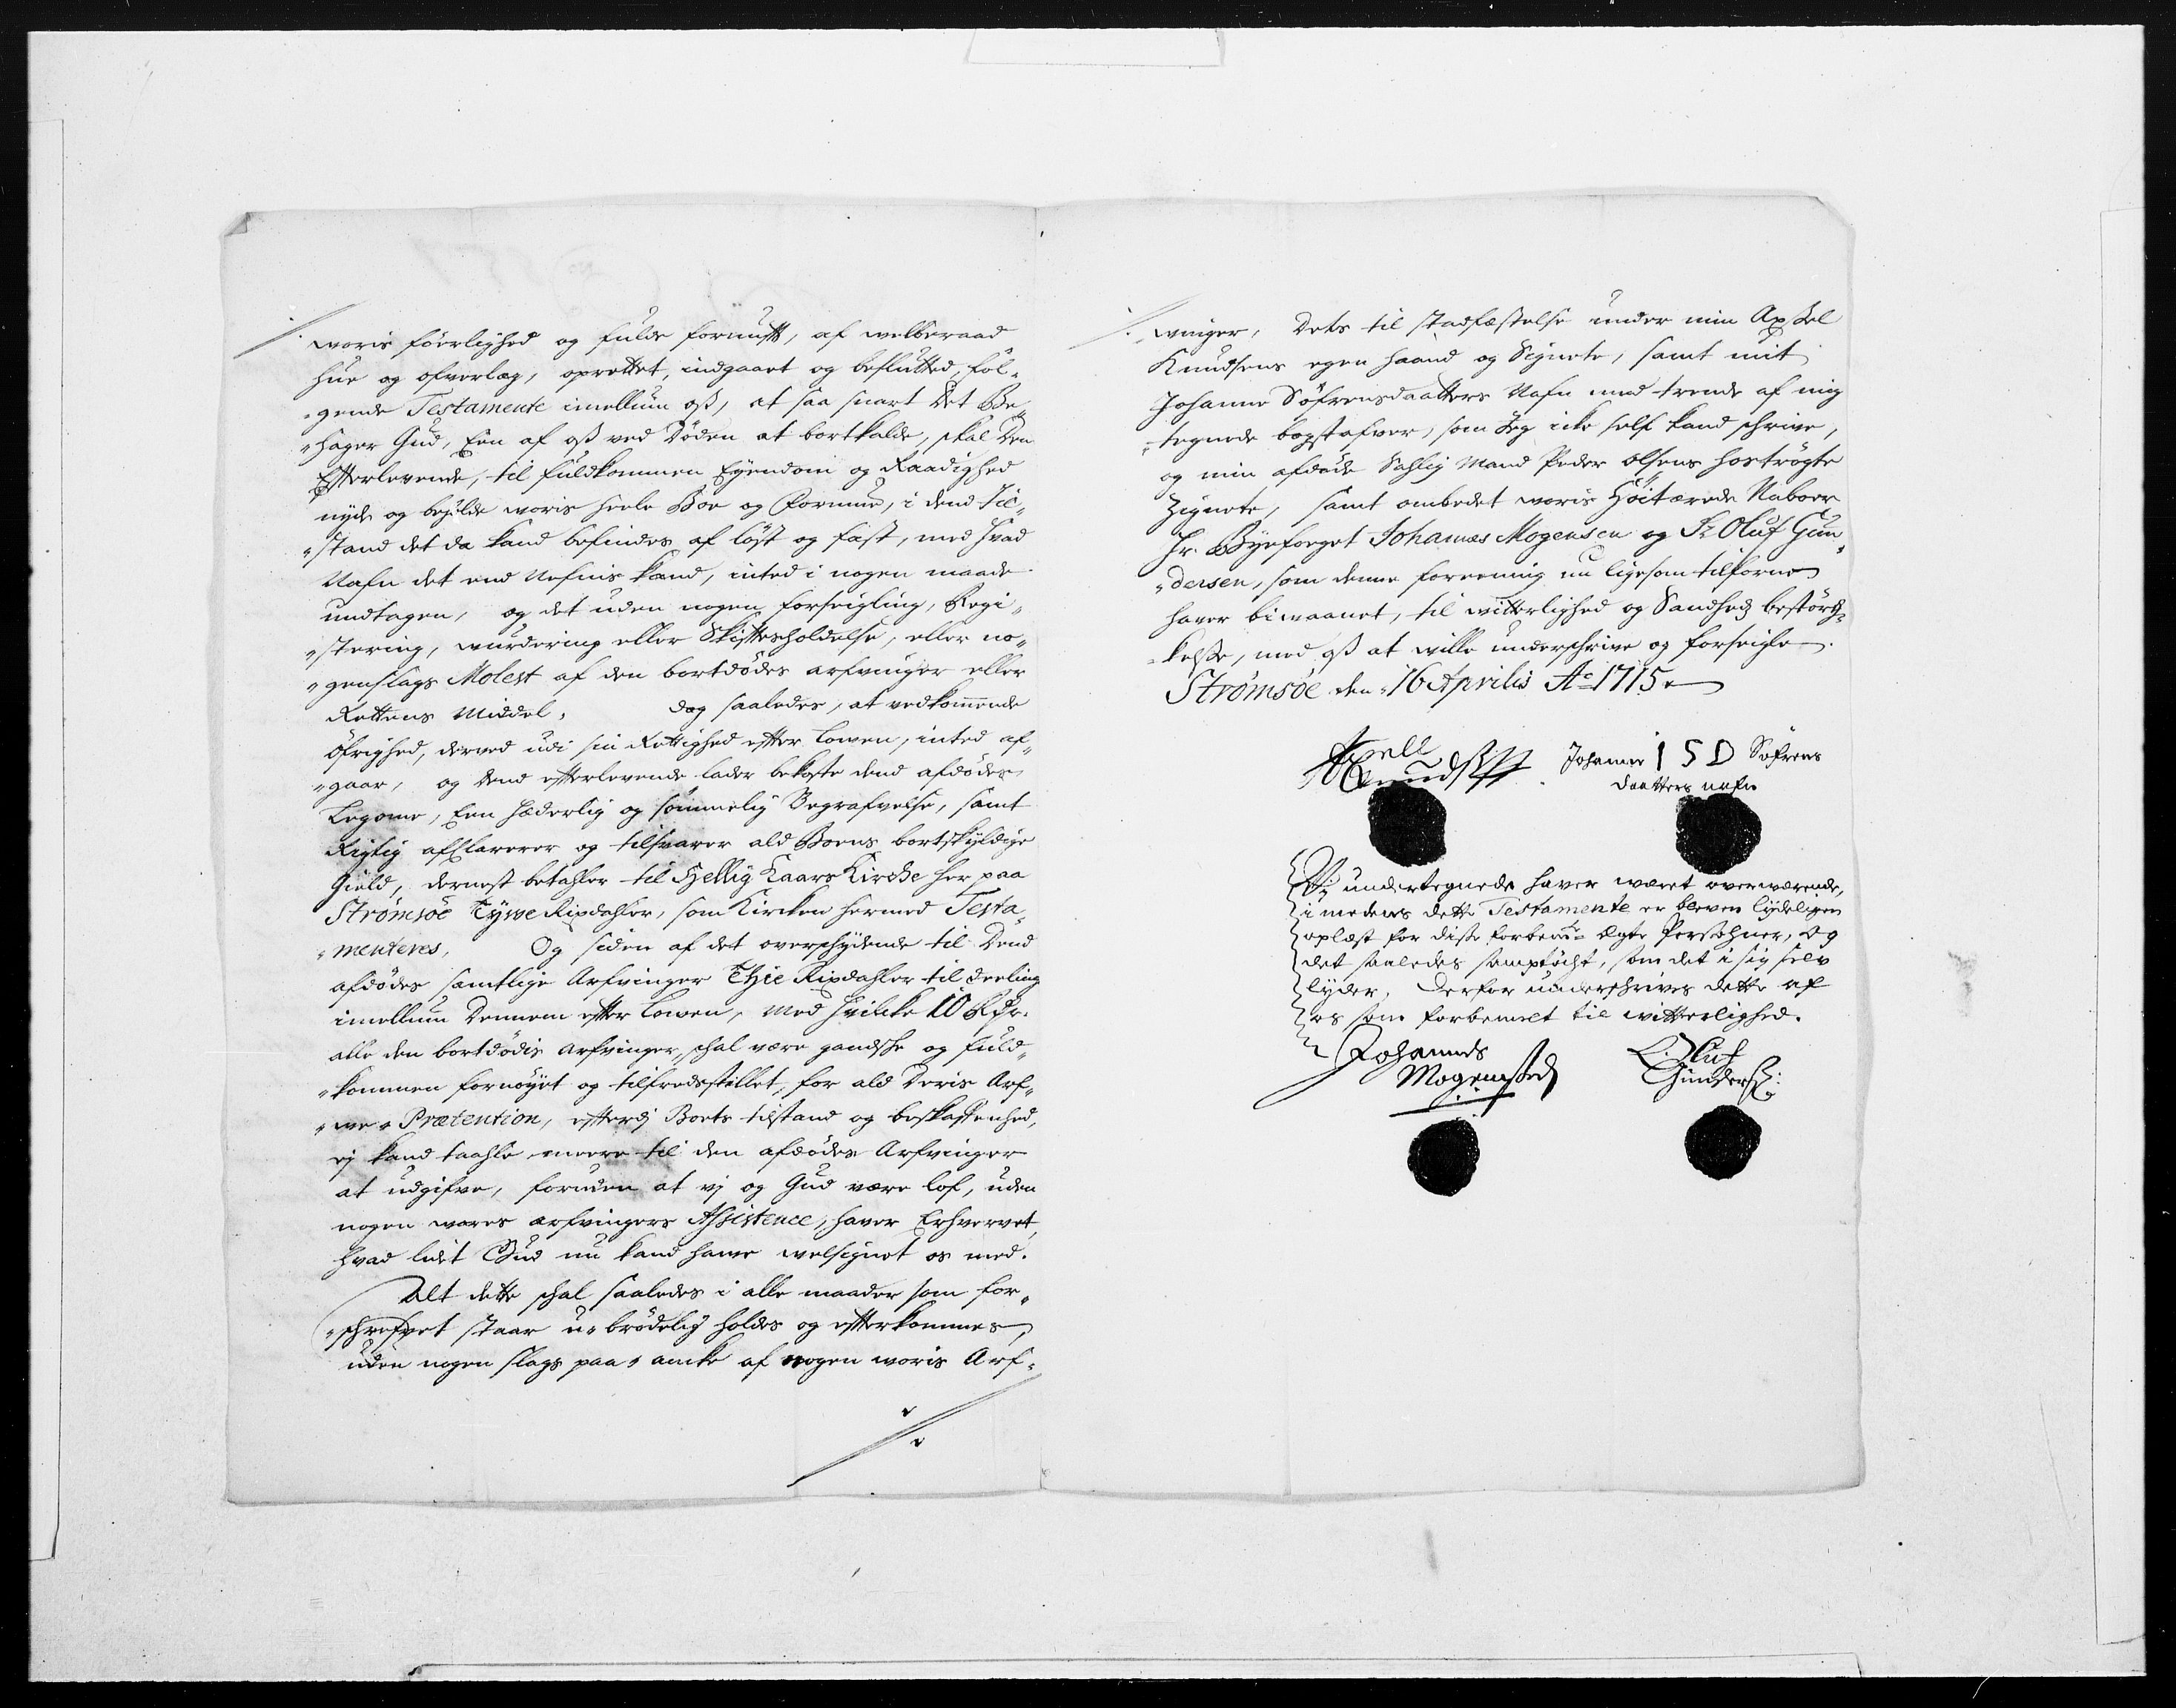 woris föerlighed og fulde fornufft, af welberaad
hue og ofverlæg, oprettet, indgaaet og beslutted, föl„
„gende Testamente imellum oß, at saa snart Det Be„
„hager Gud, Een af oß ved Döden at bortkalde, skal Den
Efterlevende, til fuldkommen Eÿendom og Raadighed
nÿde og beholde woris heele Boe og Formue, i dend Til„
„stand det da kand befindes af löst og fast, med hvad
Nafn det end Nefnis kand, inted i nogen maade
undtagen, og det uden nogen forseigling, Regi„
„stering, wurdering eller Skifftesholdelse, eller no„
„genslags Molest af den bortdödes arfvinger eller
Rettens Middel, dog saaledes, at vedkommende
öfrighed, derved udi sin Rettighed effter Lowen, inted af„
„gaar, og dend effterlevende lader bekoste dend afdödes
Legome, Een hæderlig og sömmelig Begrafvelse, samt
Rigtig afClarerer og tilsvarer ald Boens bortskÿldige
Gield, dernest betahler til Hellig Kaars Kirche her paa
Strömsöe Tÿwe Rixdahler, som Kirken hermed Testa„
„menteres, Og siden af det overschÿdende til Dend
afdödes samtlige Arfvinger Thie Rixdahler til deeling
imellum Dennem effter Lowen, Med hvilcke 10 Rdr.
alle den bortdödis Arfvinger, schal være gandske og fuld„
„kommen fornöÿet og tilfredsstillet, for ald Deris Arf„
„we„ Prætention, efterdj Boets tilstand og beskaffenhed,
ej kand taahle meere til den afdödes Arfvinger
at udgifve, foruden at vj og Gud være lof, uden
nogen wores arfvingers Assistence, haver Erhvervet,
hvad lidet Gud nu kand hawe welsignet os med.
Alt dette schal saaledes i alle maader som for„
„schrefvet staar u„brödelig holdes og effterkommes,
uden nogen slags paa„ancke af nogen woris Arf„
„winger, Dets til stadfæstelse under min Axsel
Knudsens egen haand og Signete, samt mit
Johanne Söfrensdaatters Nafn med trende af mig
tegnede bogstafver, som Jeg icke self kand schrive,
og min afdöde Sahlig Mand Peder Olsens hostrÿgte
Zignete, samt ombedet woris Höitærede Naboer
Hr. Bÿefoeget Johannes Mogensen og Sr Oluf Gun„
„dersen, som denne foreening nu ligesom tilforne
haver biwaanet, til witterlighed og Sandheds bestörch„
„kelsse, med oß at wille underschrive og forseigle.
Strömsöe den 16 Aprilis Ao 1715.
Axell
Knudsen
Johanne I S D Söfrens
daatters nafn
Vj undertegnede haver været overværende,
i medens dette Testamente er bleven lÿdeligen
oplæst for disse forbente Egte Persohner, og
det saaledes samptöcht, som det i sig selv
lÿder. Derfor underschrives dette af
os som forbemelt til witterlighed.
Johannes
Mogensen
Oluf
Gundersen